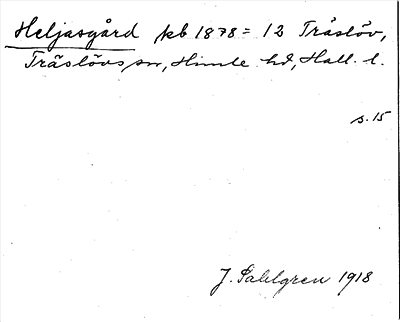 Heljasgård kb 1878 = 12 Träslöv,
Träslövs sn, Himle hd, Hall. l.
s. 15
J. Sahlgren 1918